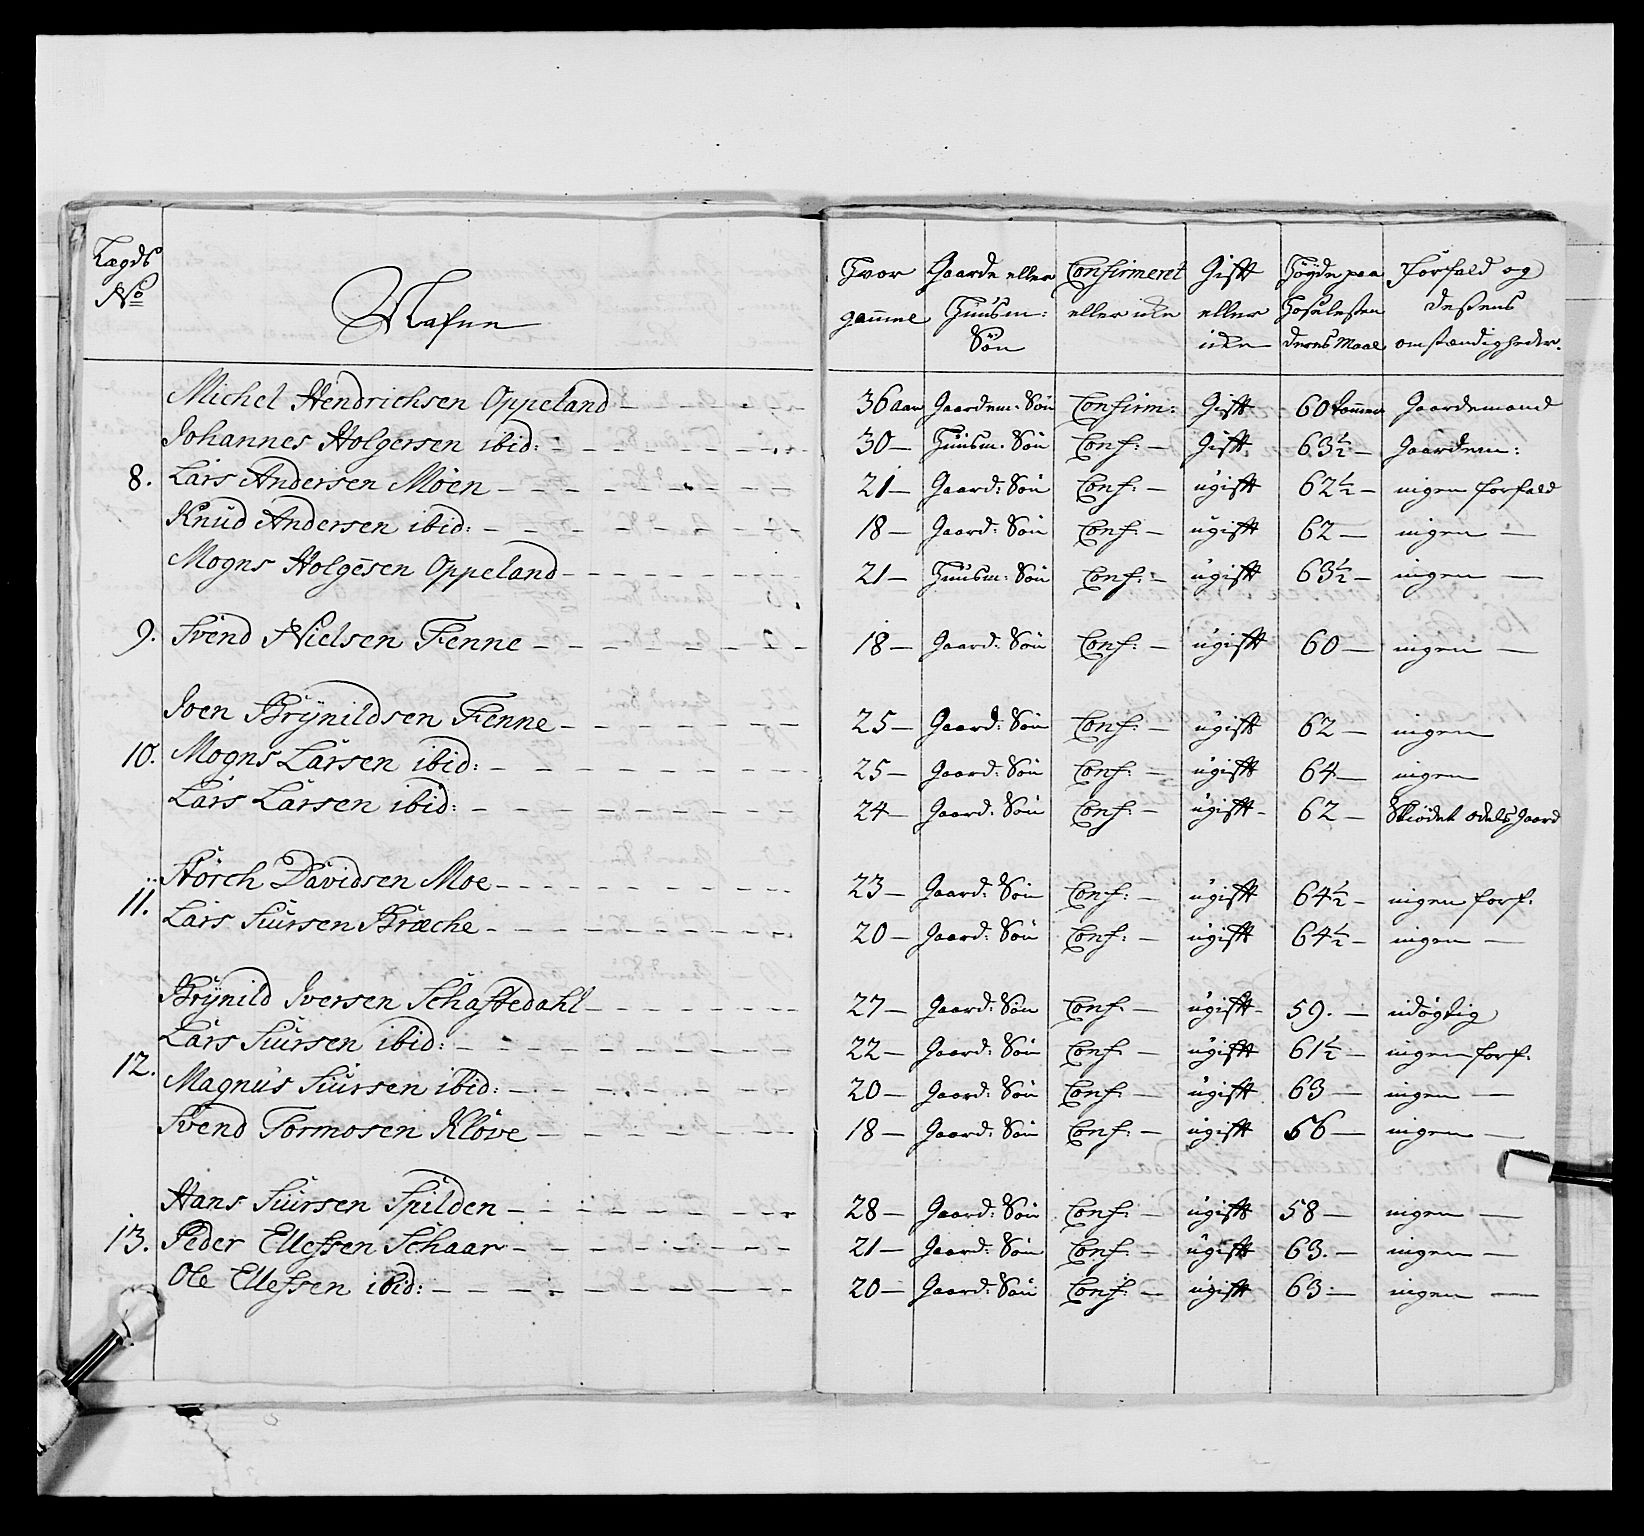 Lægds No | Nafne | Hvor gammel | Gaarde eller Huusm: Søn | Confirmeret eller icke | Gift eller icke | Høyde paa Hoselesten deres Maal | Forfald og deßens omstændigheder.
Michel Hendrichsen Oppeland — 36 aar | Gaardem: Søn | Confirm: | Gift | 60 tommer | Gaardemand
Johannes Holgersen ibid: — 30 — | Huusm. Søn | Conf: — | Gift. | 63½ — | Gaardem:
8. Lars Andersen Møen — 21 — | Gaard: Søn | Conf: — | ugift | 62½ — | ingen forfald
Knud Andersen ibid: — 18 — | Gaard: Søn | Conf: — | ugift | 62 — | ingen —
Mogns Holgesen Oppeland — 21 — | Huusm: Søn | Conf: — | ugift | 63½ — | ingen —
9. Svend Nielsen Fenne — 18 — | Gaard: Søn | Conf: — | ugift | 60 — | ingen —
Joen Brÿnildsen Fenne — 25 — | Gaard: Søn | Conf: — | ugift | 62 — | ingen
10. Mogns Larsen ibid: — 25 — | Gaard: Søn | Conf: — | ugift | 64 — | ingen
Lars Larsen ibid: — 24 — | Gaard: Søn | Conf: — | ugift | 62 — | Skiødet odels Gaard
Størch Davidsen Moe — 23 — | Gaard: Søn | Conf: — | ugift | 64½ — | ingen forf:
11. Lars Siursen Bræche — 20 — | Gaard: Søn | Conf: — | ugift | 64½ — | ingen —
Brÿnild Iversen Schaftedahl — 27 — | Gaard: Søn | Conf: — | ugift | 59. — | udøgtig
Lars Siursen ibid: — 22 — | Gaard: Søn | Conf: — | ugift | 61½ — | ingen forf:
12. Magnus Siursen ibid: — 20 — | Gaard: Søn | Conf: — | ugift | 63 — | ingen —
Svend Tormosen Kløve — 18 — | Gaard: Søn | Conf: — | ugift | 56 — | ingen —
Hans Siursen Spilden — 28 — | Gaard: Søn | Conf: — | ugift | 58 — | ingen —
13. Peder Ellefsen Schaar — 21 — | Gaard: Søn | Conf: — | ugift | 63. — | ingen —
Ole Ellefsen ibid: — 20 — | Gaard: Søn | Conf: — | ugift | 63 — | ingen —